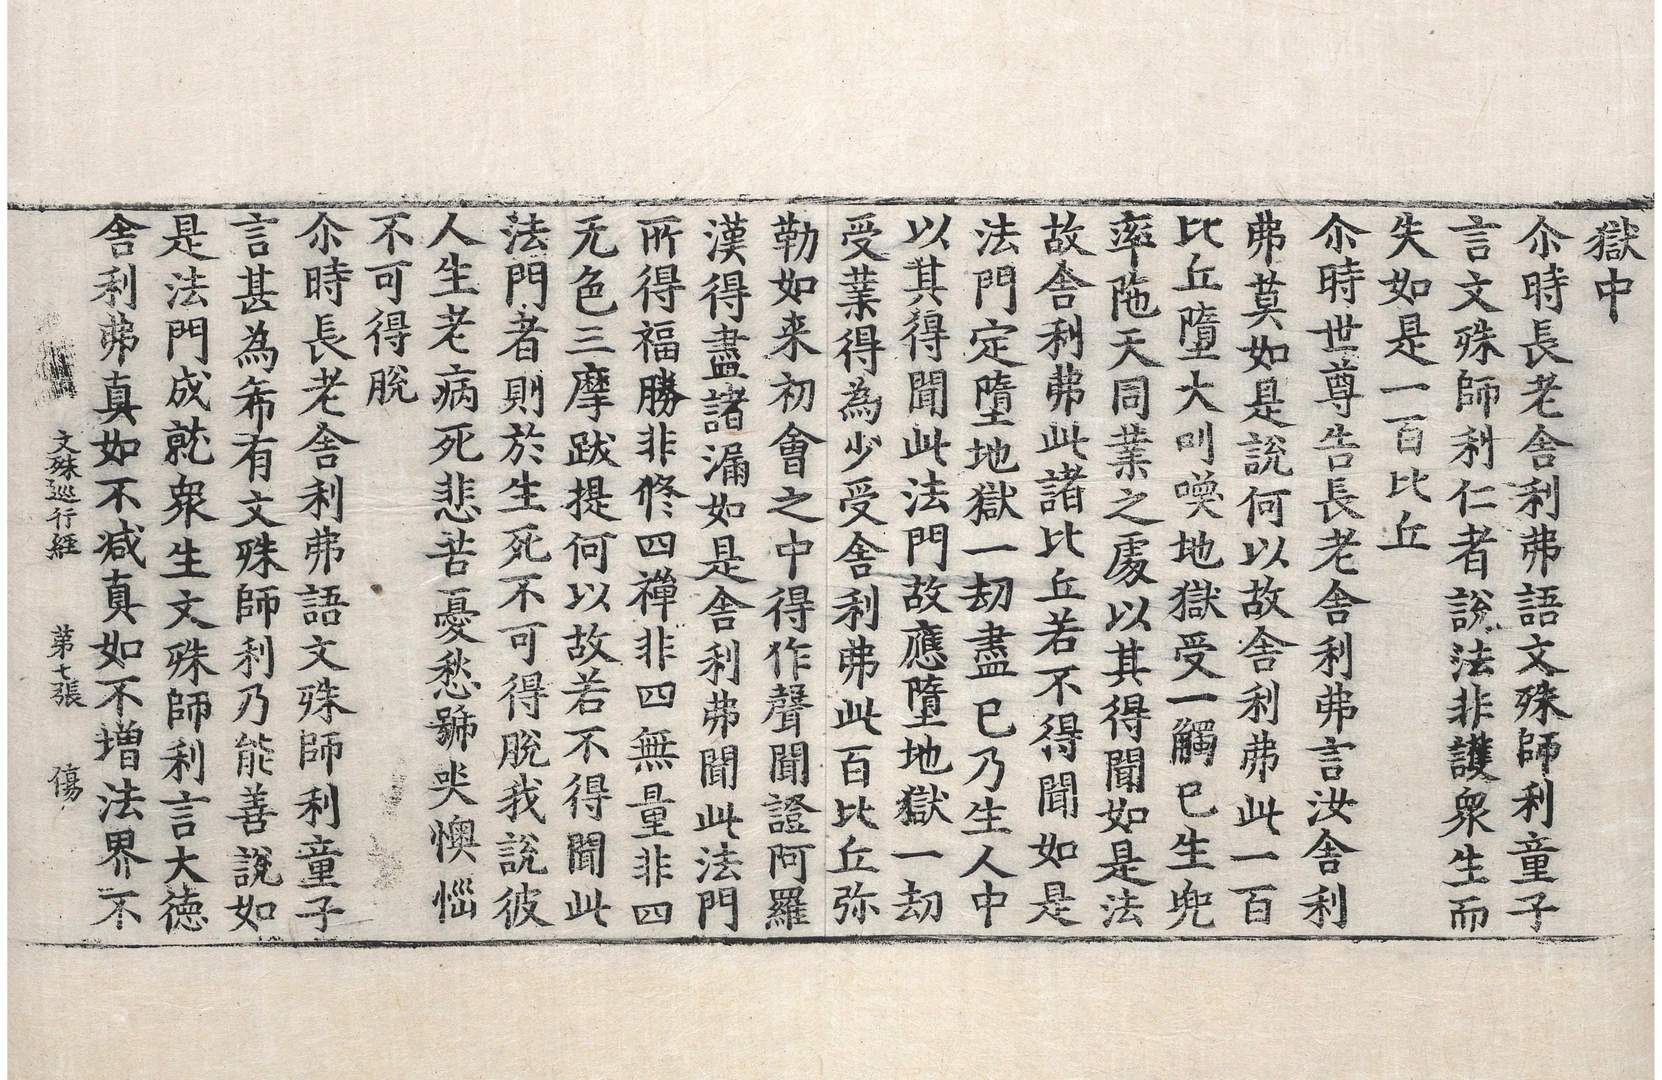 獄中
尒時長老舍利弗語文殊師利童子
言文殊師利仁者說法非護衆生而
失如是一百比丘
尒時世尊告長老舍利弗言汝舍利
弗莫如是說何以故舍利弗此一百
比丘墮大叫喚地獄受一觸已生兜
率陁天同業之處以其得聞如是法
故舍利弗此諸比丘若不得聞如是
法門定墮地獄一劫盡已乃生人中
以其得聞此法門故應墮地獄一劫
受業得為少受舍利弗此百比丘弥
勒如来初會之中得作聲聞證阿羅
漢得盡諸漏如是舍利弗聞此法門
所得福勝非修四禪非四無量非四
无色三摩跋提何以故若不得聞此
法門者則於生死不可得脫我說彼
人生老病死悲苦憂愁號哭懊惱
不可得脫
尒時長老舍利弗語文殊師利童子
言甚為希有文殊師利乃能善說如
是法門成就衆生文殊師利言大德
舍利弗真如不減真如不增法界不
文殊巡行經 第七張 傷